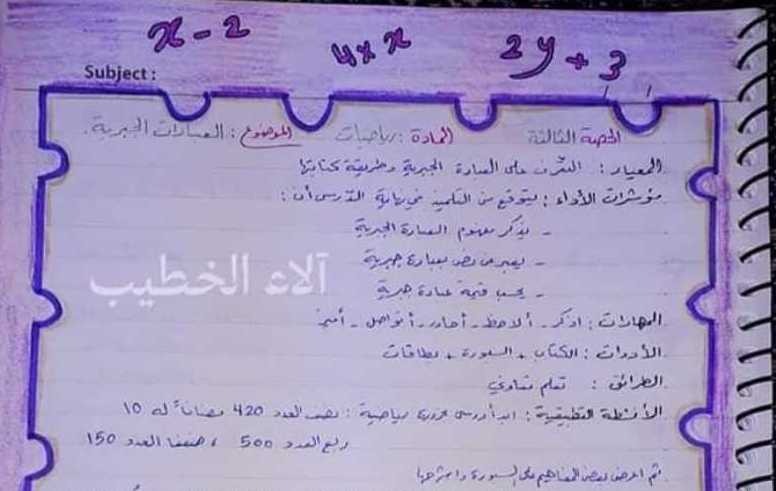 x - 2    4 × x    2y + 3
Subject :
الحصة الثالثة    المادة : رياضيات    الموضوع : العبارات الجبرية .
المعيار : التعرف على العبارة الجبرية وطريقة كتابتها
مؤشرات الأداء : يتوقع من التلميذ في نهاية الدرس أن :
- يذكر مفهوم العبارة الجبرية
- يعبر عن نص بعبارة جبرية
- يحسب قيمة عبارة جبرية
آلاء الخطيب
المهارات : اذكر - ألاحظ - أحاور - أتواصل - أميز
الأدوات : الكتاب + السبورة + بطاقات
الطرائق : تعلم تعاوني
الأنشطة التطبيقية : ابدأ درسي بحزورة رياضية : نصف العدد 420 مضافاً له 10
ربع العدد 500 ، ضعفا العدد 150
ثم اعرض بعض المفاهيم على السبورة واشرحها